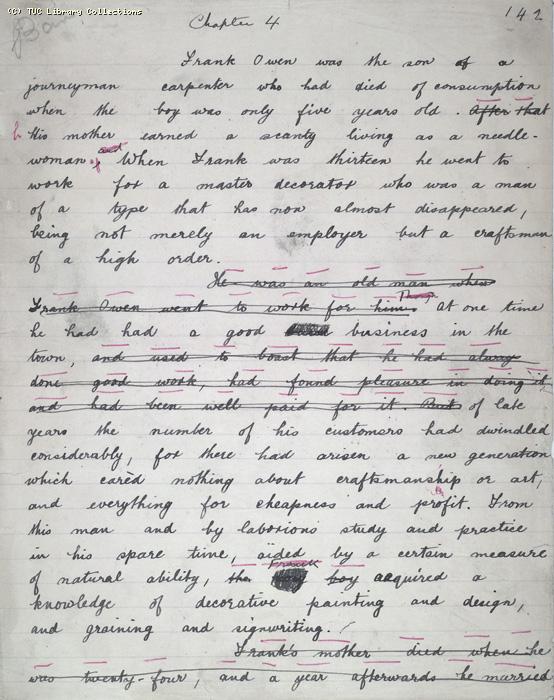 (C) TUC Library Collections
142
Chapter 4
Frank Owen was the son of a
journeyman carpenter who had died of consumption
when the boy was only five years old. After that
His mother earned a scanty living as a needle-
woman and When Frank was thirteen he went to
work for a master decorator who was a man
of a type that has now almost disappeared,
being not merely an employer but a craftsman
of a high order.
He was an old man when
Frank Owen went to work for him. Though At one time
he had had a good business in the
town, and used to boast that he had always
done good work, had found pleasure in doing it
and had been well paid for it. But of late
years the number of his customers had dwindled
considerably, for there had arisen a new generation
which cared nothing about craftsmanship or art,
and everything for cheapness and profit. From
this man and by laborious study and practice
in his spare time, aided by a certain measure
of natural ability, the Frank boy acquired a
knowledge of decorative painting and design,
and graining and signwriting.
Frank's mother died when he
was twenty-four, and a year afterwards he married